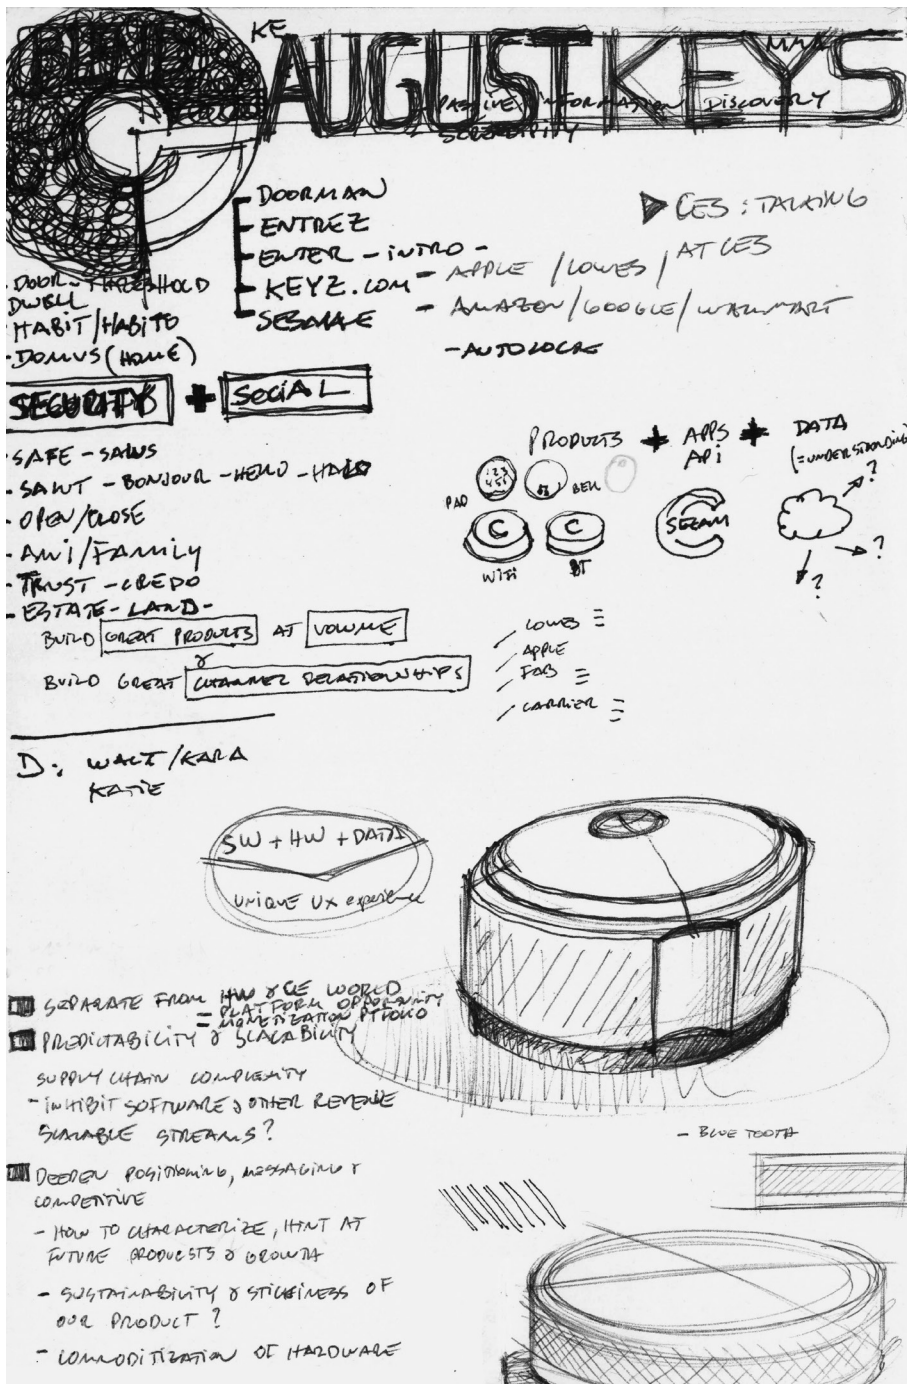 KE
AUGUST KEYS
PASSIVE INFORMATION DISCOVERY
DOORMAN
ENTREZ
ENTER - INTRO -
KEYZ.COM
SESAME
CES: TALKING
AT CES
- APPLE / LOWES /
- AMAZON / GOOGLE / WALMART
- AUTOLOCKS
- DOOR - THRESHOLD
DWELL
HABIT / HABITO
- DOMUS (HOME)
SECURITY + SOCIAL
- SAFE - SALUS
- SALUT - BONJOUR - HELLO - HALO
- OPEN/CLOSE
- AMI/FAMILY
- TRUST - CREDO
- ESTATE - LAND -
PRODUCTS + APPS + DATA
API (=UNDERSTANDING)
123
456
PAD
BELL
C C
WIFI BT
SEZAM
?
?
?
BUILD GREAT PRODUCTS AT VOLUME
&
BUILD GREAT CHANNEL RELATIONSHIPS
LOWES
APPLE
FAB
CARRIER
D: WALT/KARA
KATIE
SW + HW + DATA
UNIQUE UX experience
SEPARATE FROM HW & CE WORLD
= PLATFORM OPPORTUNITY
= MONETIZATION
PREDICTABILITY & SCALABILITY
SUPPLY CHAIN COMPLEXITY
- INHIBIT SOFTWARE & OTHER REVENUE
SCALABLE STREAMS?
- BLUETOOTH
DEEPEN POSITIONING, MESSAGING &
COMPETITIVE
- HOW TO CHARACTERIZE, HINT AT
FUTURE PRODUCTS & GROWTH
- SUSTAINABILITY & STICKINESS OF
OUR PRODUCT?
- COMMODITIZATION OF HARDWARE